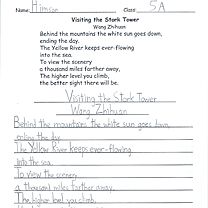 Name: Himson Class: 5A
Visiting the Stork Tower
Wang Zhihuan
Behind the mountains the white sun goes down,
ending the day.
The Yellow River keeps ever-flowing
into the sea.
To view the scenery
a thousand miles farther away,
The higher level you climb,
the better sight there will be.
Visiting the Stork Tower
Wang Zhihuan
Behind the mountains the white sun goes down,
ending the day.
The Yellow River keeps ever-flowing
into the sea.
To view the scenery
a thousand miles farther away,
The higher level you climb,